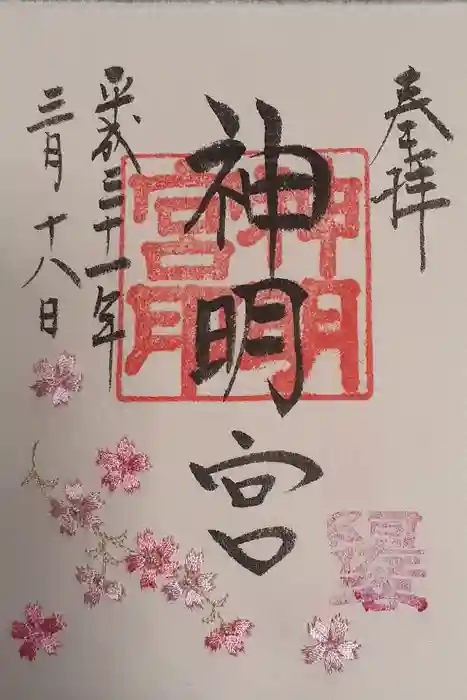 奉拝
神明宮
平成三十一年
三月十八日
神明
宮